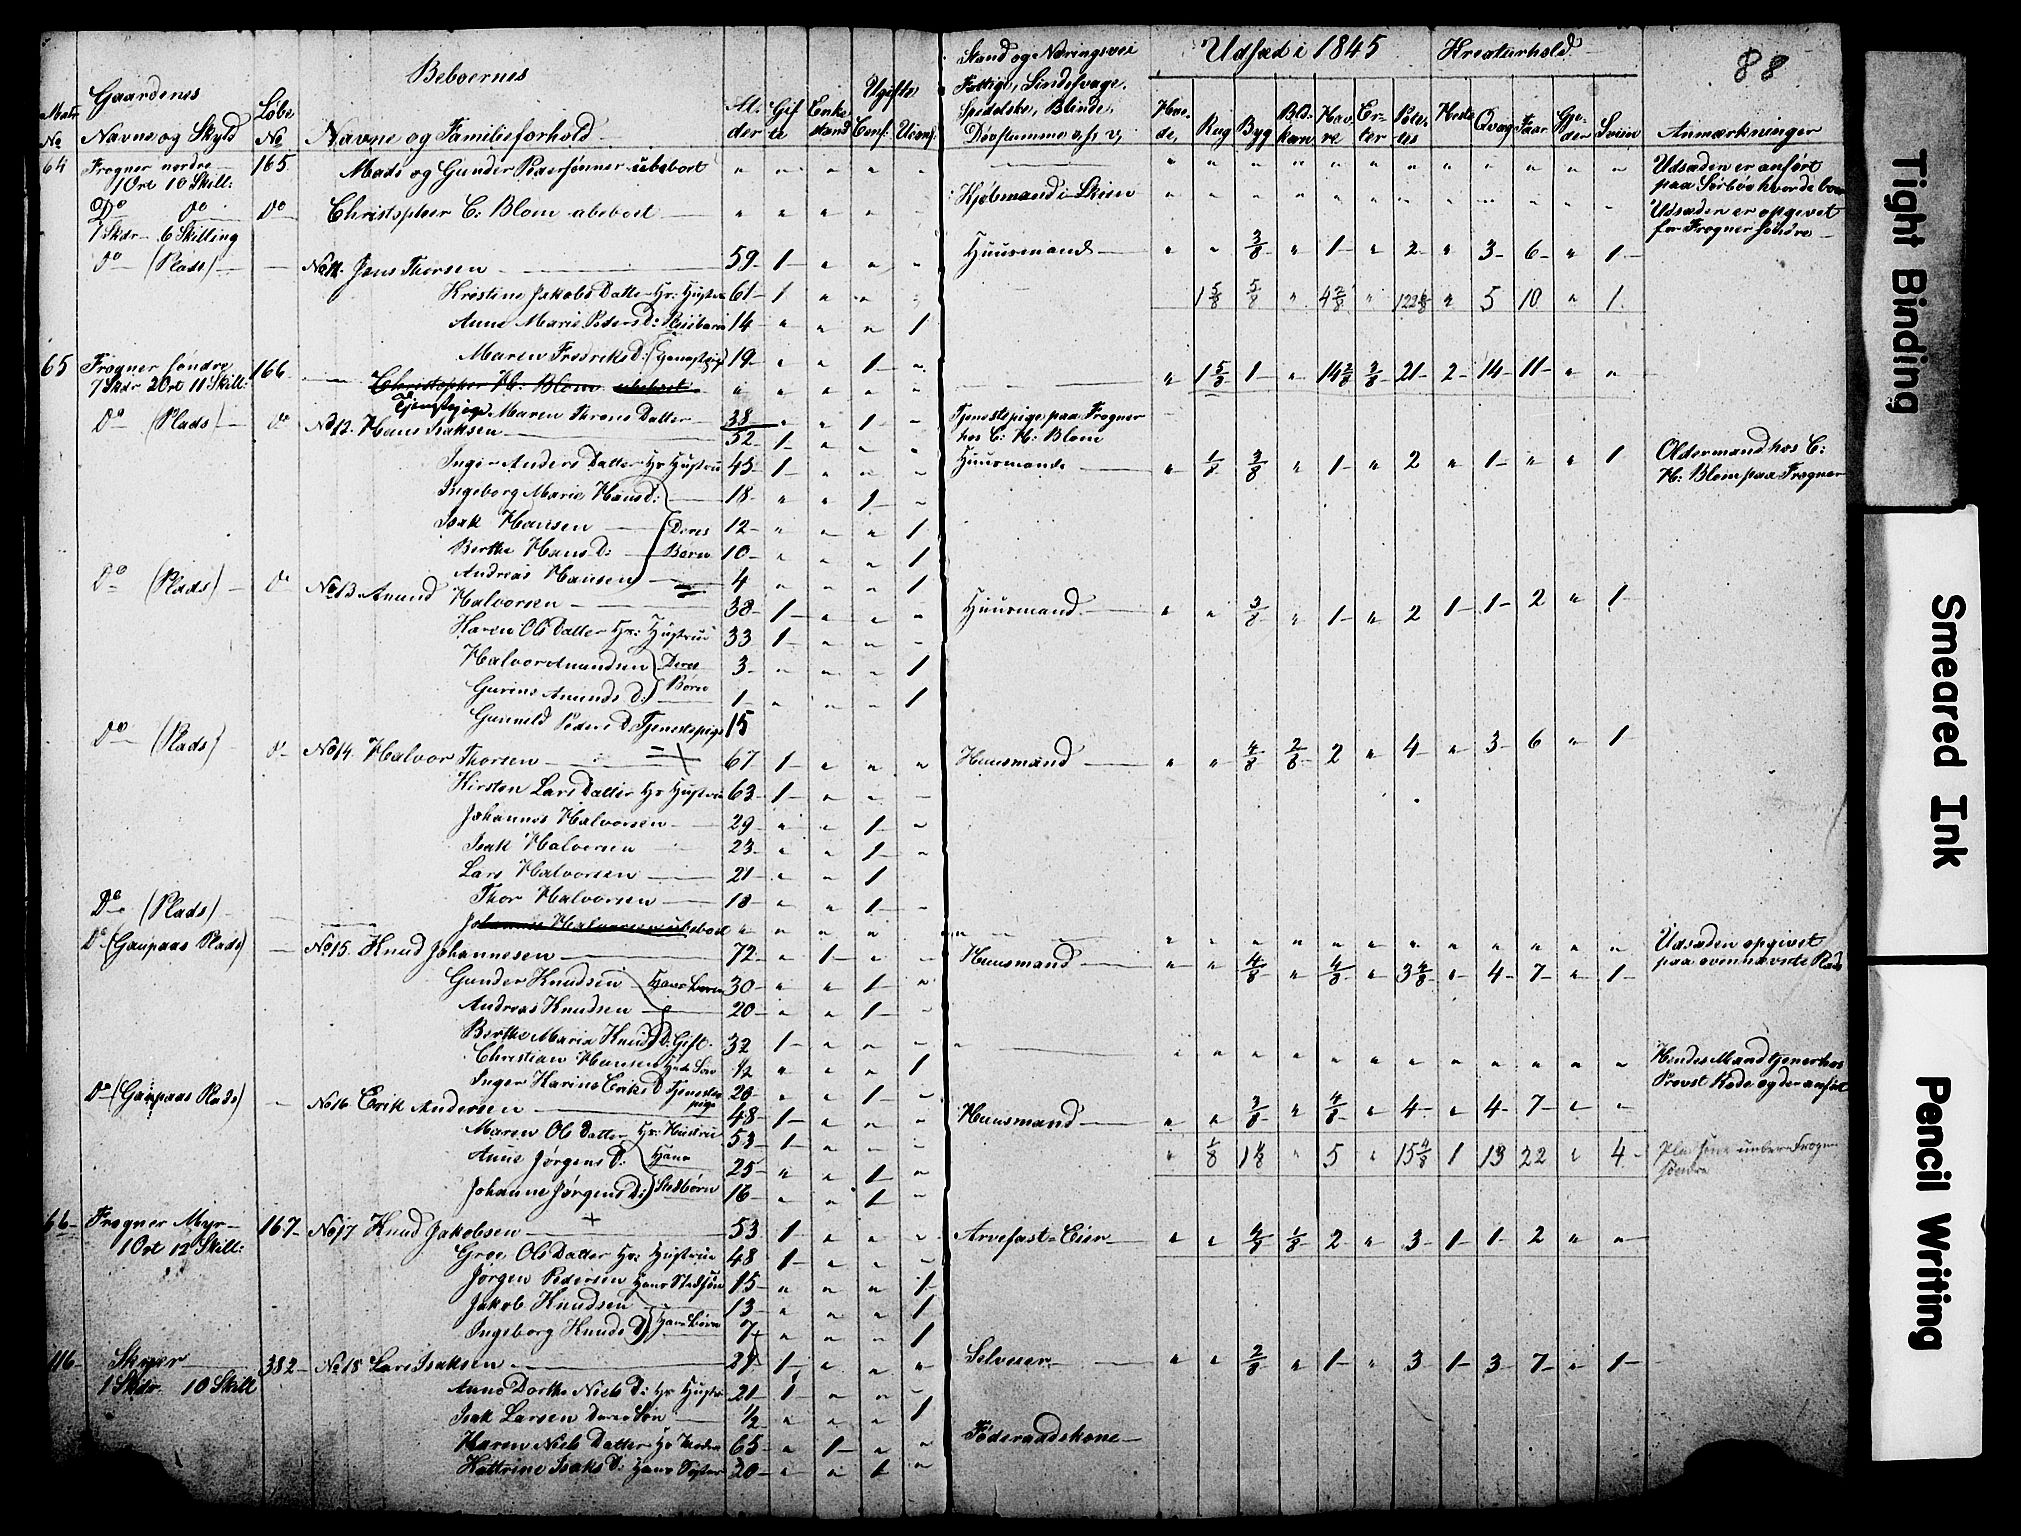 88
Beboernes
Stand og Næringsvei
Udsæd i 1845 Kreaturhold
Gaardenes
Ugifte
Fattige, Sindssvage,
Matr. No Navne og Skyld Løbe No Navne og Familieforhold Alder Gifte Enkestand Conf. Uconf.
Spedalske, Blinde,
Døvstumme o, s, v,
Hvede, Rug Byg Bl.korn Havre Erter Potetes Heste Qvæg Faar Gjeder Sviin Anmærkninger
64 Frogner nordre 165 Mads og Gunder Pedersønner ubeboet
1 Ort 10 Skill:
Udsæden er anført
paa Sörbøe hvor de boer
Do do do Christopher C: Blom ubeboet Kjøbmand i Skien
1 Skdr 6 Skilling
Udsæden er opgevet
for Frogner söndre
do (Plads) No 11. Jens Thorsen 59 1 Huusmand 3/8 1 2 3 6 1
Kirstine Jakobs Datter Hs: Hustru 61 1
1 5/8 5/8 4 2/8 5 10 1
Anne Marie Peders D: Pleiebarn 14 1
Maren Fredriks D: Tjenestepige 19 1
65 Frogner söndre 166 Christopher H: Blom ubeboet
7 Skdr 2 Ort 11 Skill:
1 5/8 1 14 2/8 3/8 21 2 14 11
Tjenestepige Maren Throns Datter 38 1
Tjenestepige paa Frogner
hos C: H: Blom
Do (Plads) do No 12. Hans Isaksen 52 1
Inger Anders Datter Hs Hustru 45 1 Huusmand 1/8 3/8 1 2 1 1
Oldermand hos C:
H: Blom paa Frogner
Ingeborg Marie Hansd: 18 1
Isak Hansen Deres 12 1
Berthe Hans D: Børn 10 1
Andreas Hansen 4 1
Do (Plads) do No 13 Anund Halvorsen 38 1 Huusmand 3/8 1 2 1 1 2 1
Karen Ols Datter Hs: Hustrue 33 1
Halvor Anundsen Deres 3 1
Gurine Anunds D: Børn 1 1
Gunnild Peders D Tjenestepige 15
Do (Plads) do No 14. Halvor Thorsen 67 1 Huusmand 4/8 2/8 2 4 3 6 1
Kirsten Lars Datter Hs Hustru 63 1
Johannes Halvorsen 29 1
Isak Halvorsen 23 1
Lars Halvorsen 21 1
Thor Halvorsen 18 1
Do (Plads) Johannes Halvorsen ubeboet
Udsæden opgivet
paa ovennævnte Plads
Do (Gaupaas Plads) No 15. Knud Johannesen 72 1 Huusmand 4/8 4/8 3 4/8 4 7 1
Gunder Knudsen Hans Børn 30 1
Andreas Knudsen 20 1
Berthe Maria Knuds D: Gift 32 1
Christian Hansen Hendes Søn 1/2 1
Hendes Mand tjener hos
Provst Rode og der anført
Inger Karine Eriks D Tjenestepige 20 1
Do (Gaupaas Plads) No 16 Erik Andersen 48 1 Huusmand 3/8 4/8 4 4 7
Maren Ols Datter Hs: Hustrue 53 1
Anne Jørgens D: Hans 25 1
1/8 5 15 4/8 1 13 22 4
under Frogner
söndre
Johanne Jørgens D: Stedbørn 16 1
66 Frogner Myr 167 No 17 Knud Jakobsen 53 1 Arvefæst-Eier 4/8 1/8 2 3 1 1 2
1 Ort 12 Skill:
Groe Ols Datter Hs: Hustrue 48 1
Jørgen Pedersen Hans Stedsøn 15 1
Jakob Knudsen 13 1
Ingeborg Knuds D Hans Børn 7 1
116 382 No 18 Lars Isaksen 29 1 Selveier 2/8 1 3 1 3 7 1
1 Skdr. 10 Skill
Anne Dorthe Niels D: Hs Hustru 21 1
Isak Larsen deres Søn 1/2 1
Karen Niels Datter Hs Moder 65 1 Føderaadskone
Kattrine Isaks D: Hans Søster 20 1
Tight Binding
Smeared Ink
Pencil Writing